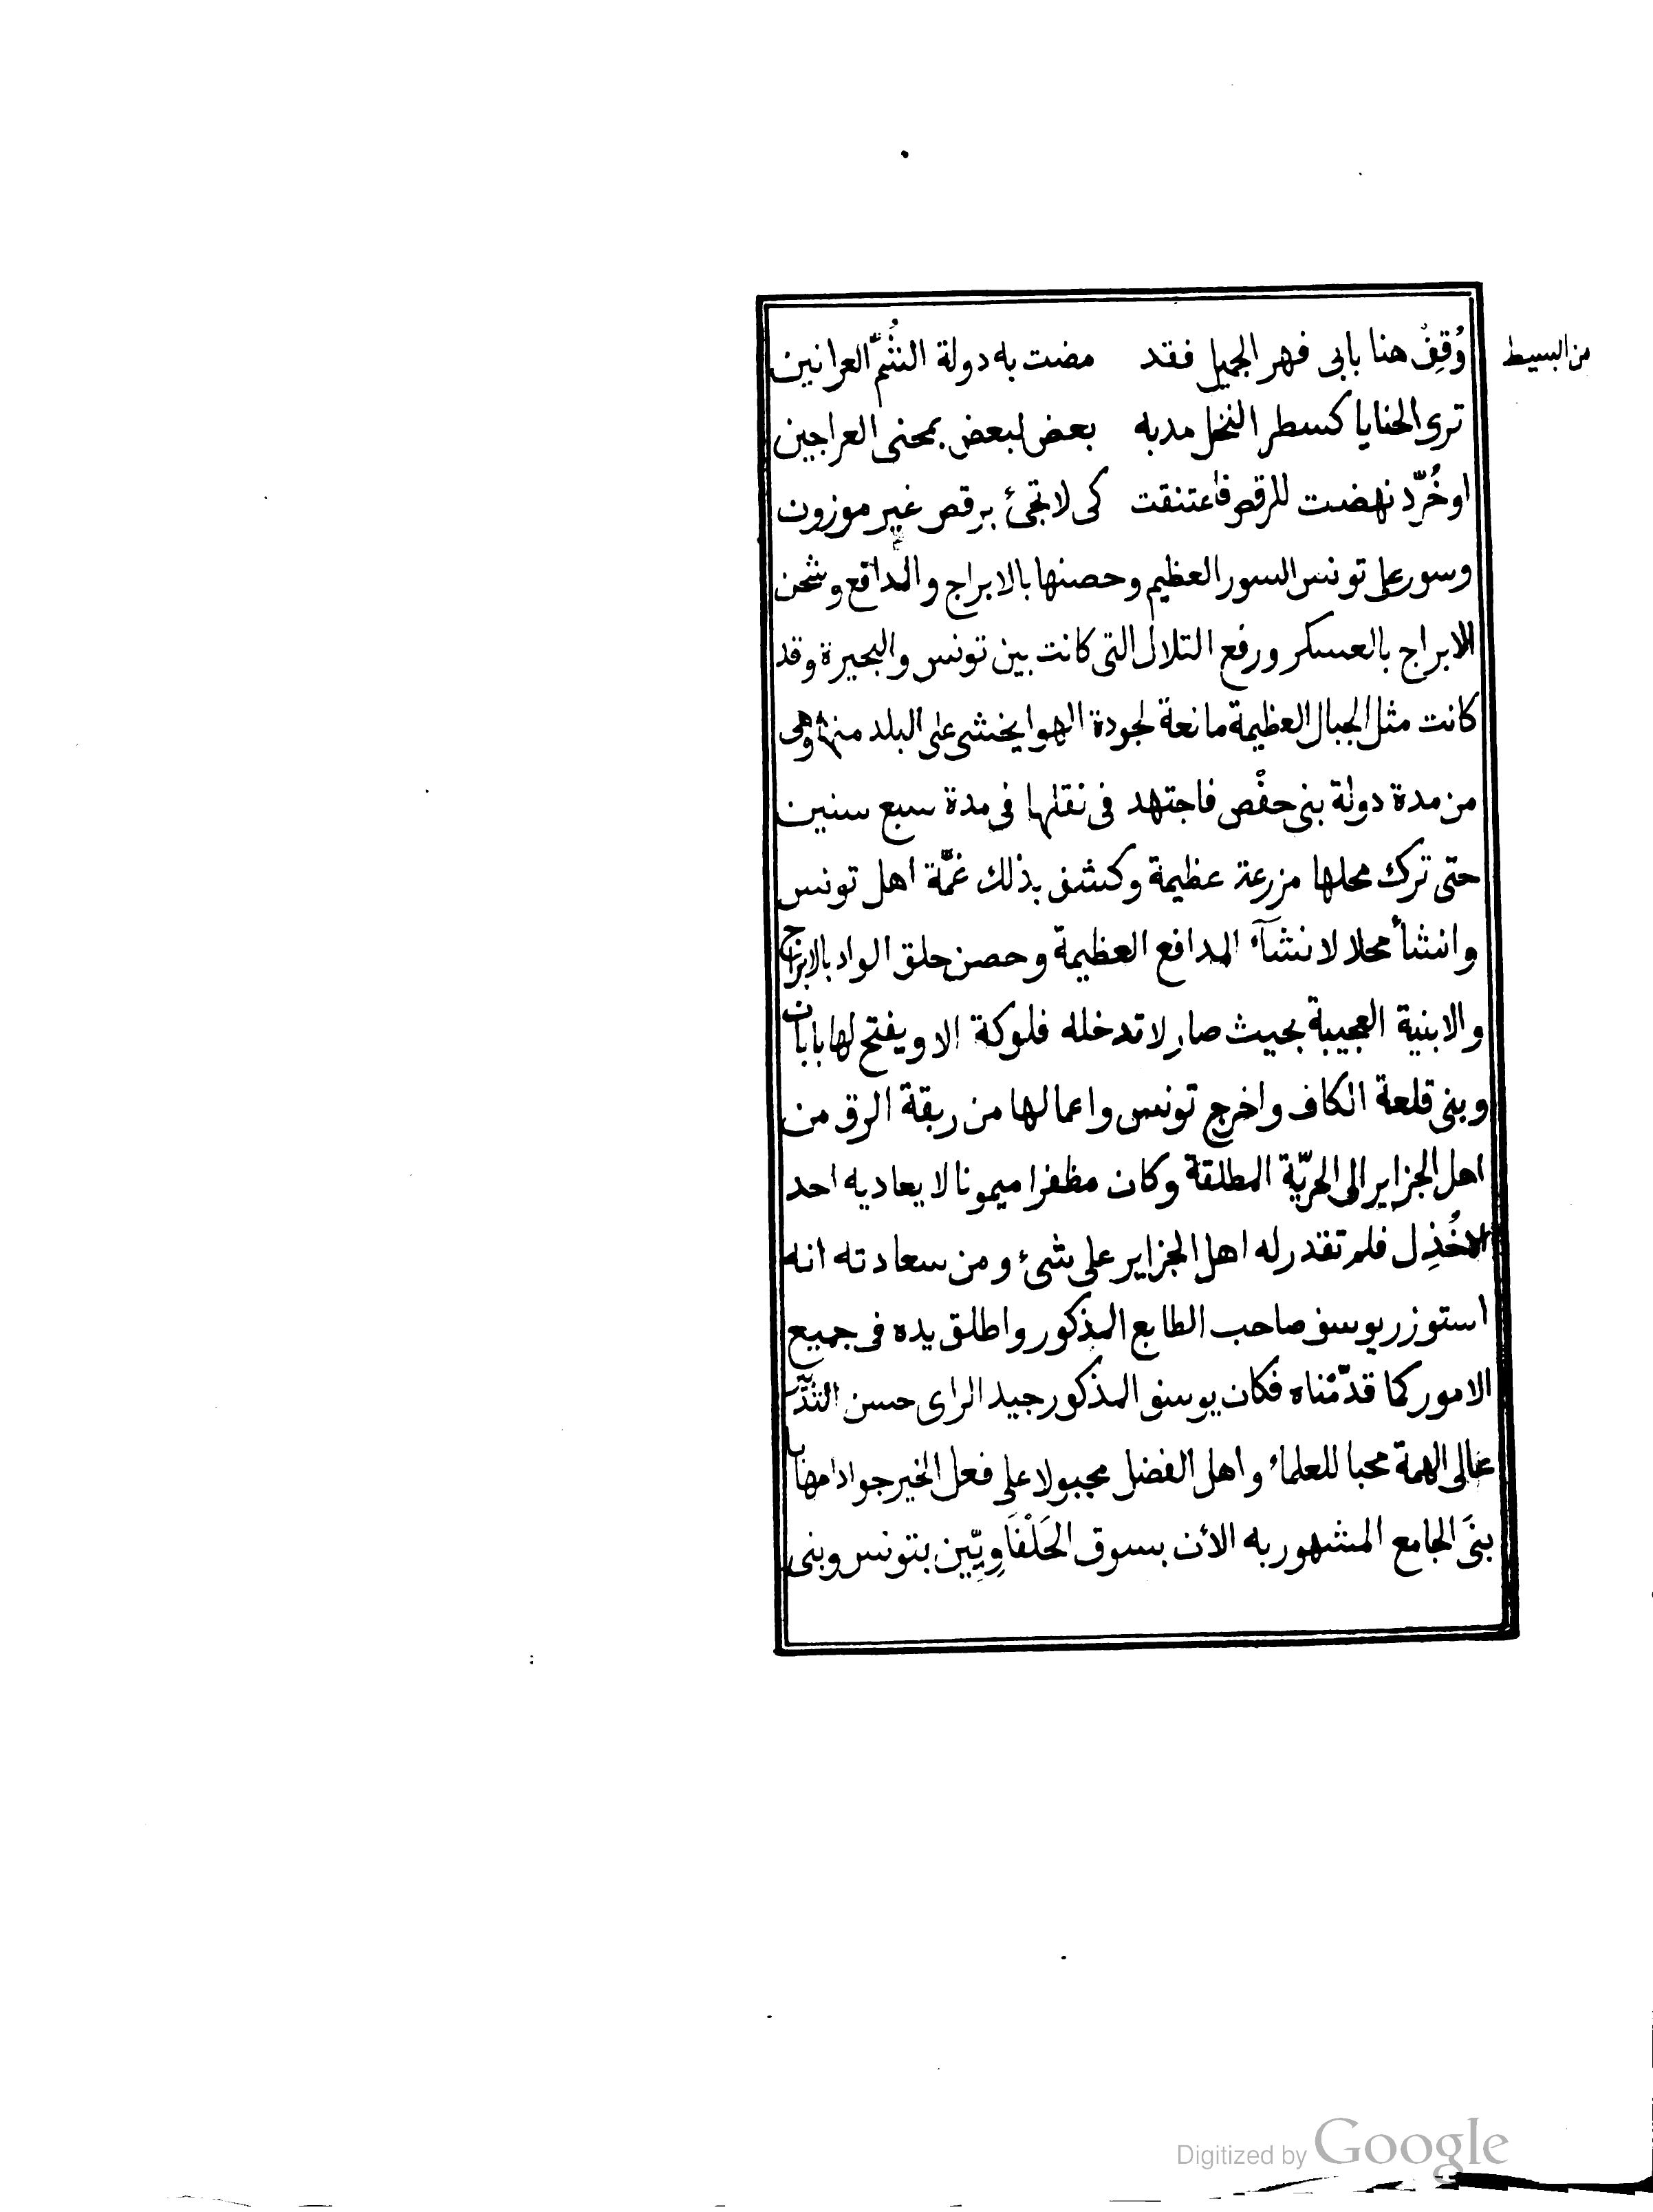 من البسيط
وُقِفْ هنا بابى فهر الجميل فقد مضت به دولة الشُمّ العرانين
ترى الحنايا كسطر النخل مد به بعض لبعض بمحنى العراجين
او خُرّد نهضت للرقص فاعتنقت كى لا تجئ برقص غير موزون
وسور على تونس السور العظيم وحصنها بالابراج والمدافع وشحن
الابراج بالعسكر ورفع التلال التى كانت بين تونس والبحيرة وقد
كانت مثل الجبال العظيمة مانعة لجودة الهوا يخشى على البلد منها وهى
من مدة دولة بنى حفْص فاجتهد فى نقلها فى مدة سبع سنين
حتى ترك محلها مزرعة عظيمة وكشف بذلك غمّة اهل تونس
وانشأ محلا لانشآء المدافع العظيمة وحصن حلق الواد بالابراج
والابنية العجيبة بحيث صار لا تدخله فلوكة الا ويفتح لها بابان
وبنى قلعة الكاف واخرج تونس واعمالها من ربقة الرق من
اهل الجزاير الى الحريّة المطلقة وكان مظفرا ميمونا لا يعاديه احد
الا خُذِل فلم تقدر له اهل الجزاير على شئ ومن سعادته انه
استوزر يوسف صاحب الطابع المذكور واطلق يده فى جميع
الامور كما قدّمْناه فكان يوسف المذكور جيد الراى حسن التدبير
عالى الهمة محبا للعلماء واهل الفضل مجبولا على فعل الخير جوادا مهابا
بنَى الجامع المشهور به الأن بسوق الحَلْفَاوِيِّين بتونس وبنى
Digitized by Google